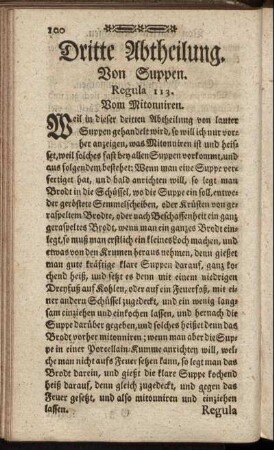 100
Dritte Abtheilung.
Von Suppen.
Regula 113.
Vom Mitonniren.
Weil in dieser dritten Abtheilung von lauter
Suppen gehandelt wird, so will ich nur vor-
her anzeigen, was Mitonniren ist und heis-
set, weil solches fast bey allen Suppen vorkommt, und
aus folgendem bestehet: Wenn man eine Suppe ver-
fertiget hat, und bald anrichten will, so legt man
Brodt in die Schüssel, wo die Suppe ein soll, entwe-
der geröstete Semmelscheiben, oder Krüsten von ge-
raspeltem Brodte, oder nach Beschaffenheit ein ganz
geraspeltes Brodt, wenn man ein ganzes Brodt ein-
legt, so muß man erstlich ein kleines Loch machen, und
etwas von den Krumen heraus nehmen, denn gießet
man gute kräftige klare Suppen darauf, ganz ko-
chend heiß, und setzt es denn mit einem niedrigen
Dreyfuß auf Kohlen, oder auf ein Feuerfaß, mit ei-
ner andern Schüssel zugedeckt, und ein wenig lang-
sam einziehen und einkochen lassen, und hernach die
Suppe darüber gegeben, und solches heißet denn das
Brodt vorher mitonniren; wenn man aber die Sup-
pe in einer Porcellain-Kumme anrichten will, wel-
che man nicht aufs Feuer setzen kann, so legt man das
Brodt darein, und gießt die klare Suppe kochend
heiß darauf, denn gleich zugedeckt, und gegen das
Feuer gesetzt, und also mitonniren und einziehen
lassen. Regula